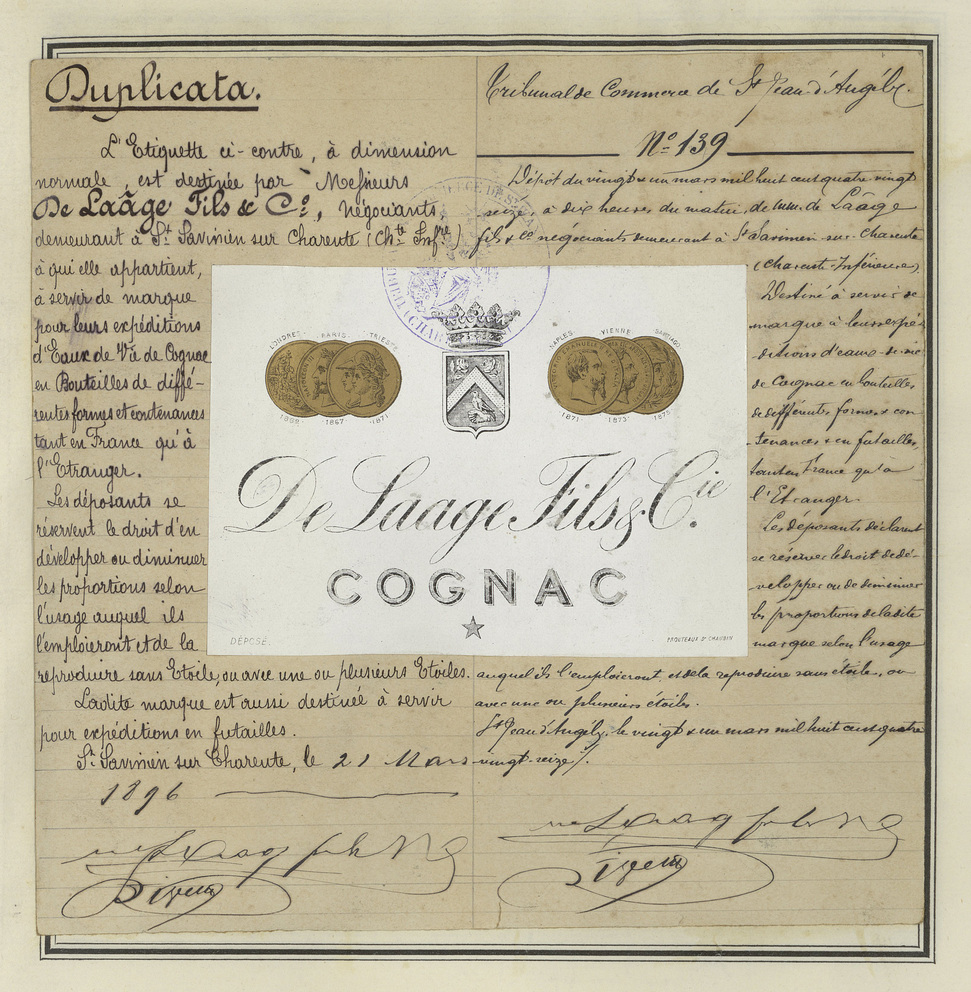 Duplicata.
L'Etiquette ci-contre, à dimension
normale, est destinée par Messieurs
De Laâge Fils & Cº, Négociants
demeurant à St Savinien sur Charente (Chte Infre)
à qui elle appartient,
à servir de marque
pour leurs expéditions
d'Eaux de Vie de Cognac
en Bouteilles de diffé-
rentes formes et contenances
tant en France qu'à
l'Etranger.
Les déposants se
réservent le droit d'en
développer ou diminuer
les proportions selon
l'usage auquel ils
l'emploieront et de la
reproduire sans Etoile, ou avec une ou plusieurs Etoiles.
Ladite marque est aussi destinée à servir
pour expéditions en futailles.
St Savinien sur Charente, le 21 Mars
1896
Tribunal de Commerce de St Jean d'Angély.
Nº 139
Dépôt du vingt & un mars mil huit cent quatre vingt
seize, à dix heures du matin, de MM. de Laâge
fils & Cº négociants demeurant à St Savinien sur Charente
(Charente-Inférieure)
Destiné à servir de
marque à leurs expé-
ditions d'eaux-de-vie
de Cognac en bouteilles
de différentes formes & con
tenances & en futailles,
tant en France qu'à
l'Etranger.
Les déposants déclarent
se réserver le droit de dé-
velopper ou de diminuer
les proportions de ladite
marque selon l'usage
auquel ils l'emploieront et de la reproduire sans étoile, ou
avec une ou plusieurs étoiles.
St Jean d'Angély, le vingt & un mars mil huit cent quatre
vingt-seize.
LONDRES PARIS TRIESTE
1862 1867 1871
NAPLES VIENNE SANTIAGO
1871 1873 1875
De Laage Fils & Cie.
COGNAC
DÉPOSÉ.